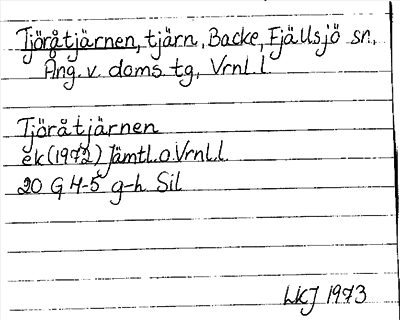 Tjöråtjärnen, tjärn, Backe, Fjällsjö sn,
Ång. v. doms. tg, Vrnl. l.
Tjöråtjärnen
ek (1972) Jämtl. o. Vrnl. l.
20 G 4-5 g-h Sil
LKJ 1973